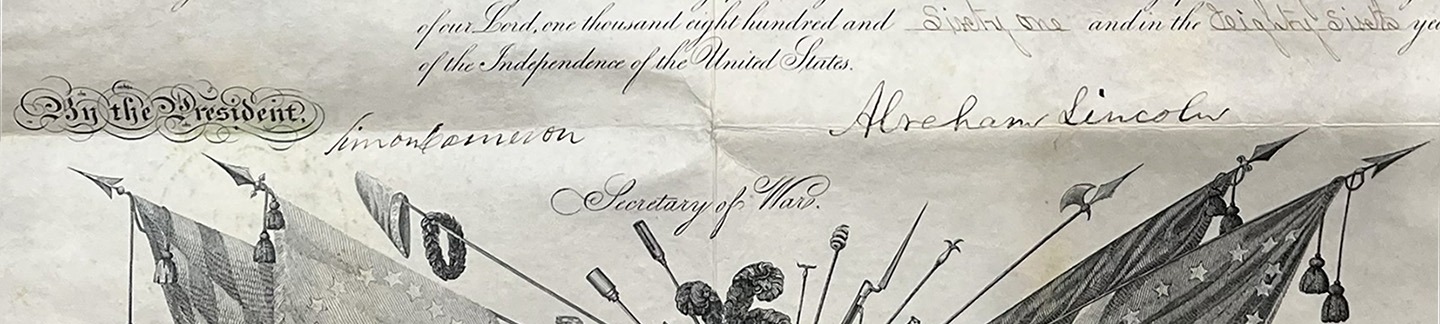 of our Lord, one thousand eight hundred and Sixty one and in the Eighty Sixth ye
of the Independence of the United States.
By the President,
Abraham Lincoln
Simon Cameron
Secretary of War.